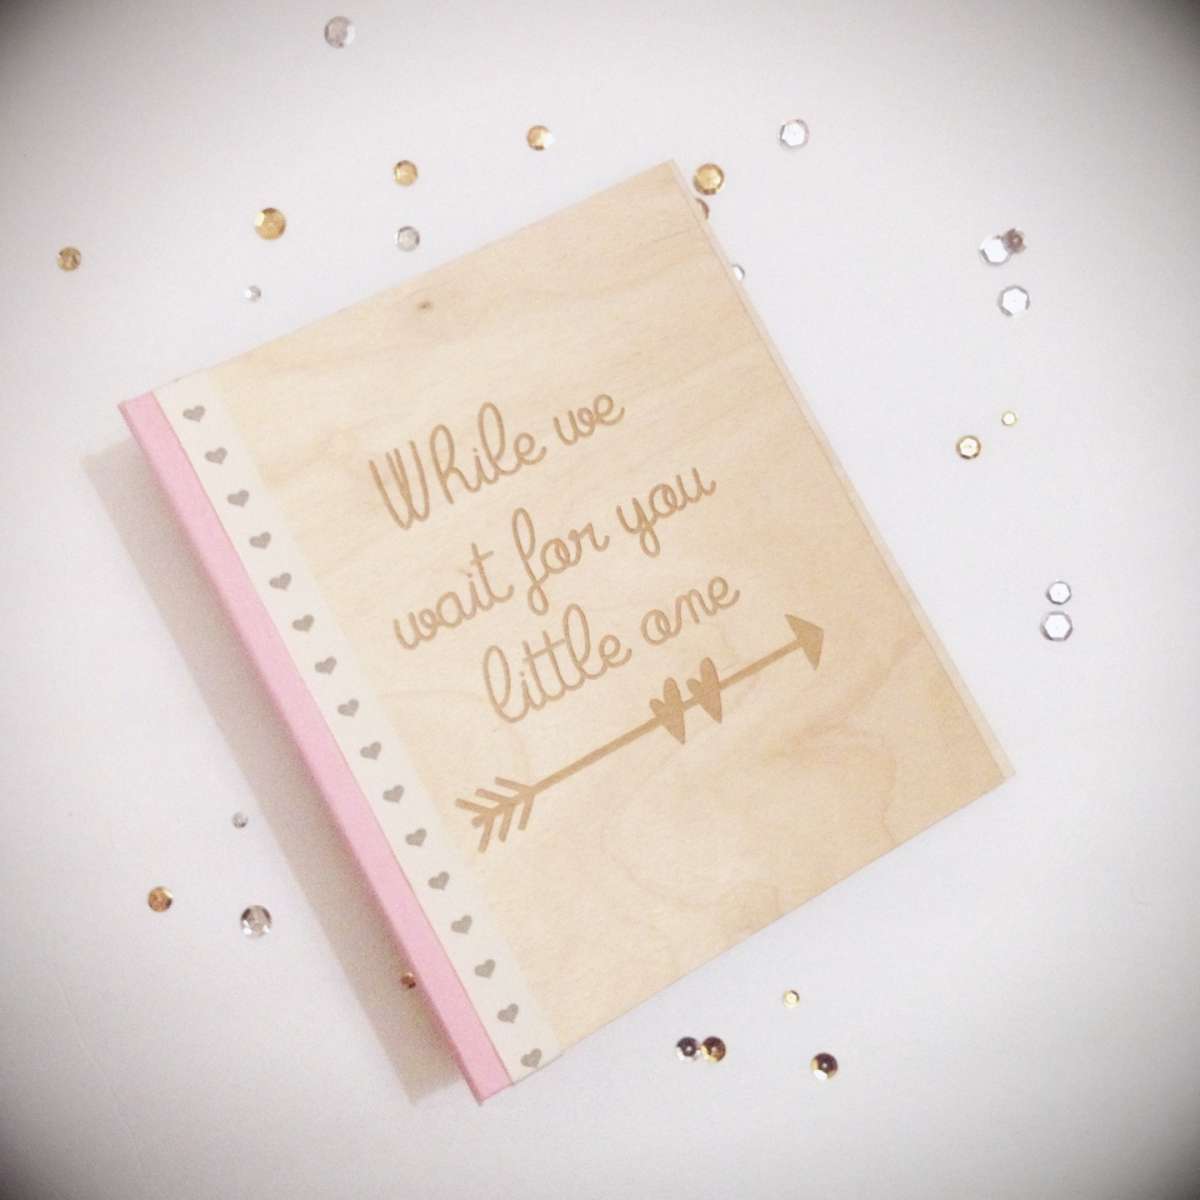 While we
wait for you
little one